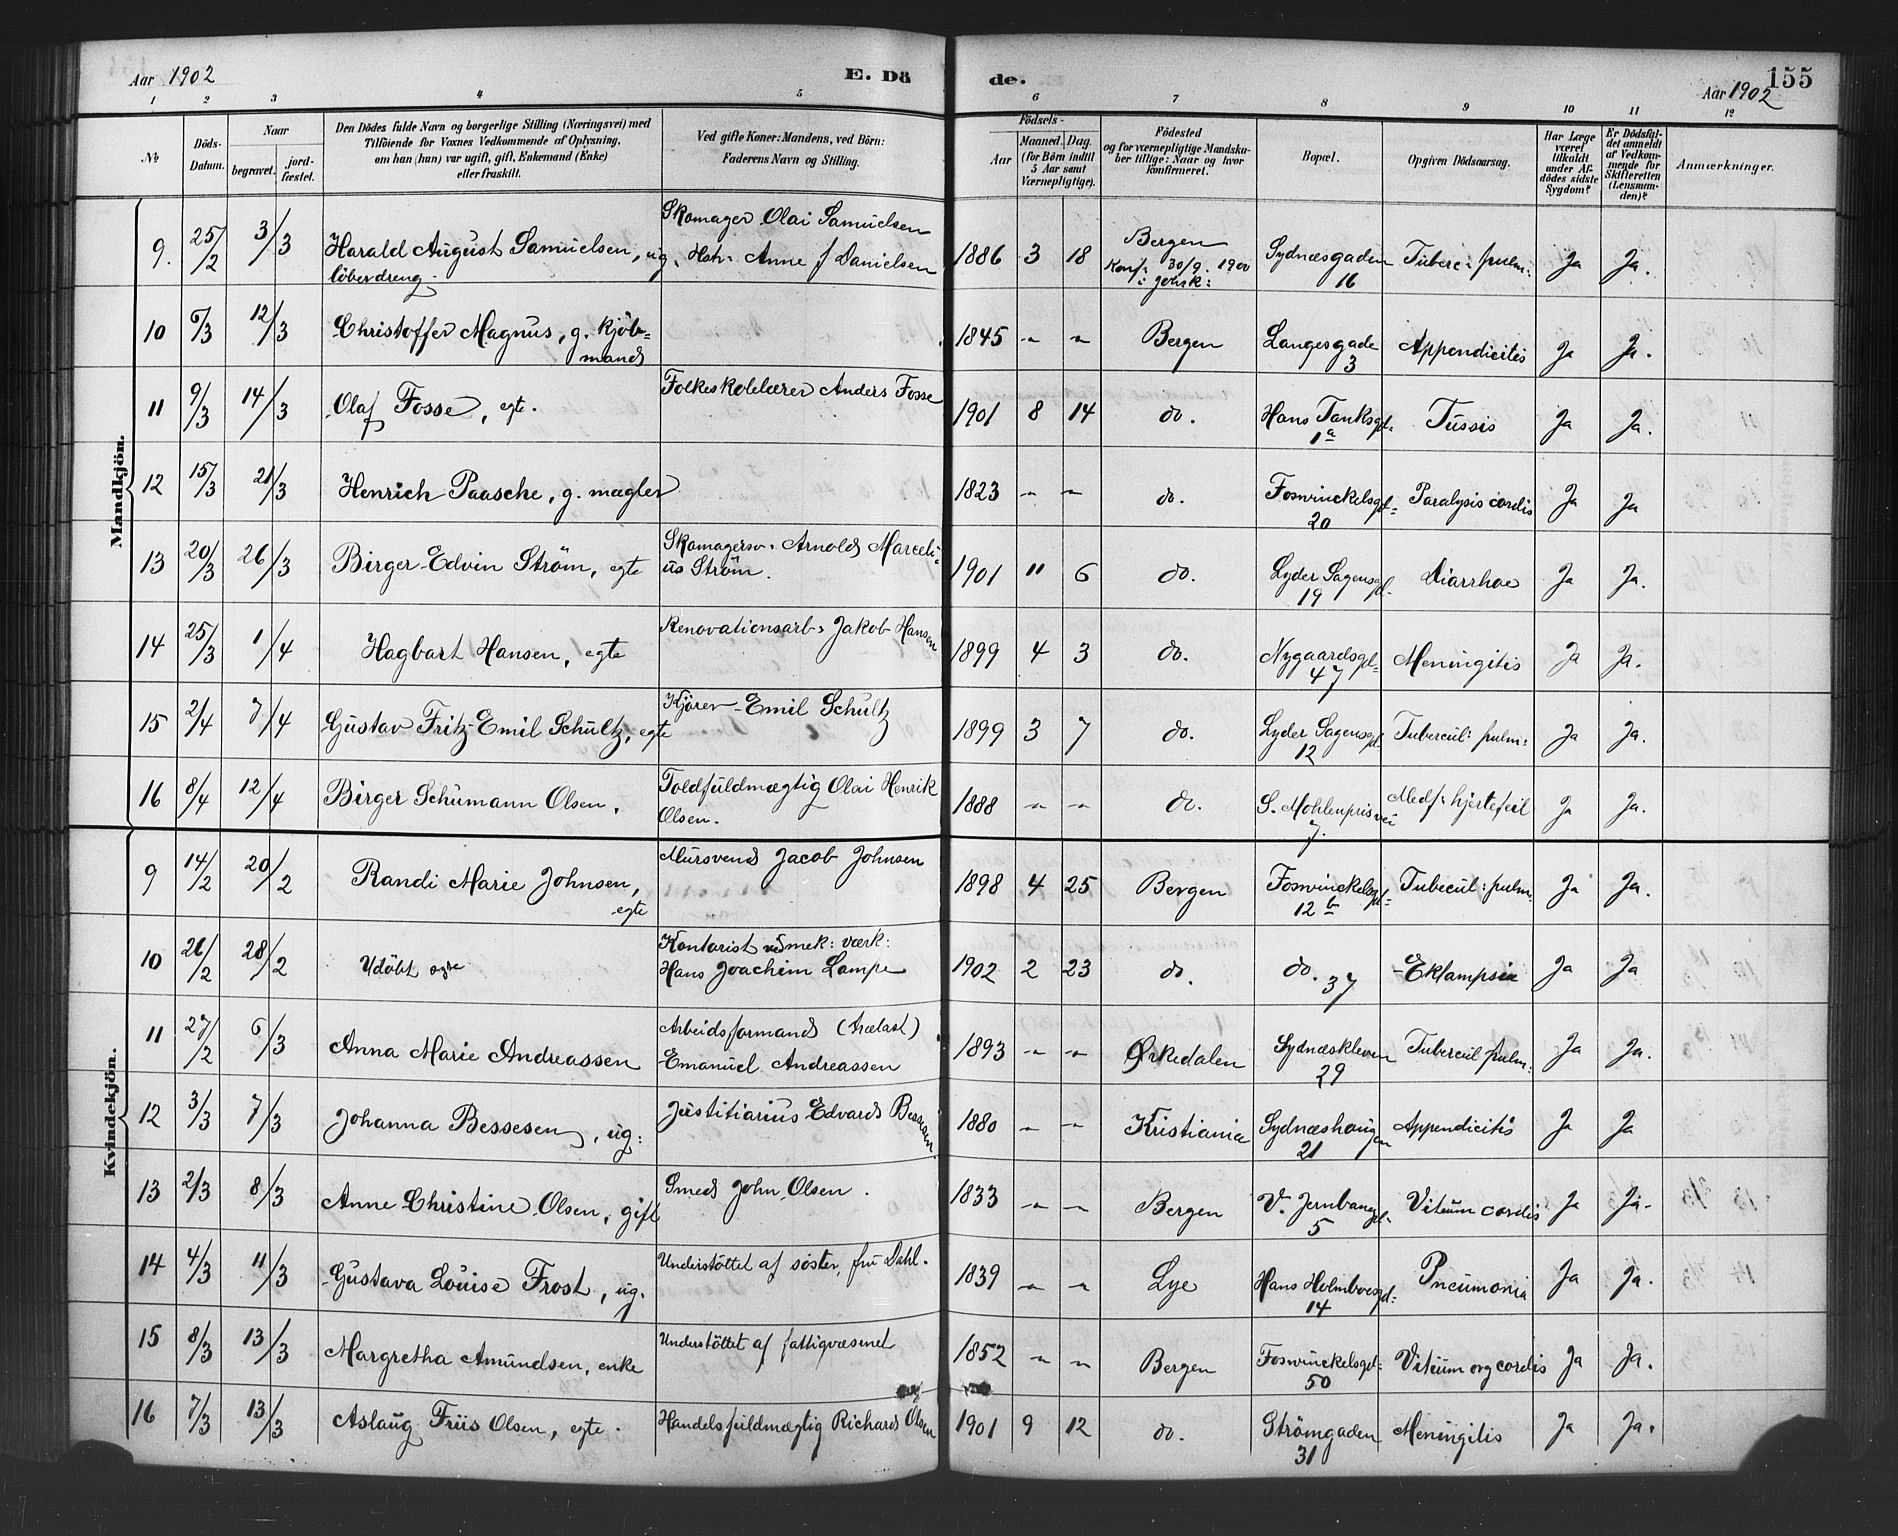 Aar 1902
E. Dö
de.
155
Aar 1902
1 2 3 4 5 6 7 8 9 10 11 12
№
Döds-Datum.
Naar
begravet.
jord-fæstet.
Den Dödes fulde Navn og borgerlige Stilling (Næringsvei) med
Tilföiende for Voxnes Vedkommende af Oplysning,
om han (hun) var ugift, gift, Enkemand (Enke)
eller fraskilt.
Ved gifte Koner: Mandens, ved Börn:
Faderens Navn og Stilling.
Födsels-
Aar
Maaned. Dag.
(for Börn indtil
5 Aar samt
Værnepligtige).
Födested
og for værnepligtige Mandska-
ber tillige: Naar og hvor
konfirmeret.
Bopæl.
Opgiven Dödsaarsag.
Har Læge
været
tilkaldt
under Af-
dödes sidste
Sygdom?
Er Dödsfal-
det anmeldt
af Vedkom-
mende for
Skifteretten
(Lensman-
den)?
Anmærkninger.
Mandkjön.
9. 25/2 3/3 Harald August Samuelsen, ug. löberdreng. Skomager Olai Samuelsen Hstr. Anne f Danielsen 1886 3 18 Bergen Konf: 30/9. 1900 i Johsk: Sydnæsgaden 16 Tuberc: pulm: Ja Ja.
10 6/3 12/3 Christoffer Magnus, g. kjöbmand 1845 " " Bergen Langesgade 3 Appendicitis Ja Ja.
11 9/3 14/3 Olaf Fosse, egte. Folkeskolelærer Anders Fosse 1901 8 14 do. Hans Tanksgd. 1a Tussis Ja Ja.
12 15/3 21/3 Henrich Paasche, g. mægler 1823 " " do. Foswinckelsgd. 20 Paralysis cordis Ja Ja
13 20/3 26/3 Birger Edvin Ström, egte Skomagersv. Arnold Marcelius Ström. 1901 11 6 do. Lyder Sagensgd. 19 Diarrhoe Ja Ja.
14 25/3 1/4 Hagbart Hansen, egte Renovationsarb. Jakob Hansen 1899 4 3 do. Nygaardsgd. 47 Meningitis Ja Ja.
15 2/4 7/4 Gustav Fritz Emil Schultz, egte Kjörer Emil Schultz 1899 3 7 do. Lyder Sagensgd. 12 Tubercul: pulm: Ja Ja.
16 8/4 12/4 Birger Schumann Olsen. Toldfuldmægtig Olai Henrik Olsen. 1888 " " do. S. Mohlenprisvei 7. Medf: hjertefeil Ja Ja.
Kvindekjön.
9 14/2 20/2 Randi Marie Johnsen, egte Mursvend Jacob Johnsen 1898 4 25 Bergen Foswinckelsgd. 12 b Tubecul: pulm. Ja Ja.
10 26/2 28/2 Udöbt egte Kontorist v. mek: værk: Hans Joachim Lampe 1902 2 23 do. do. 37 Eklampsia Ja Ja
11 27/2 6/3 Anna Marie Andreassen Arbeidsformand (Trælast) Emanuel Andreassen 1893 " " Ørkedalen Sydnæskleven 29 Tubercul pulm: Ja Ja.
12 3/3 7/3 Johanna Bessesen, ug: Justitiarius Edvard Bessesen. 1880 " " Kristiania Sydnæshaugen 21 Appendicitis Ja Ja
13 2/3 8/3 Anne Christine Olsen, gift Smed John Olsen. 1833 " " Bergen V. Jernbanegd. 5 Vitium cordis Ja Ja.
14 4/3 11/3 Gustava Louise Frost, ug. Understöttet af söster, fru Dahl. 1839 " " Lye Hans Holmboesgd: 14 Pneumonia Ja Ja.
15 8/3 13/3 Margretha Amundsen, enke Understöttet af fattigvæsenet 1852 " " Bergen Foswinckelsgd. 50 Vitium org cordis Ja Ja.
16 7/3 13/3 Aslaug Friis Olsen, egte. Handelsfuldmægtig Richard Olsen 1901 9 12 do. Strömgaden 31 Meningitis Ja Ja.